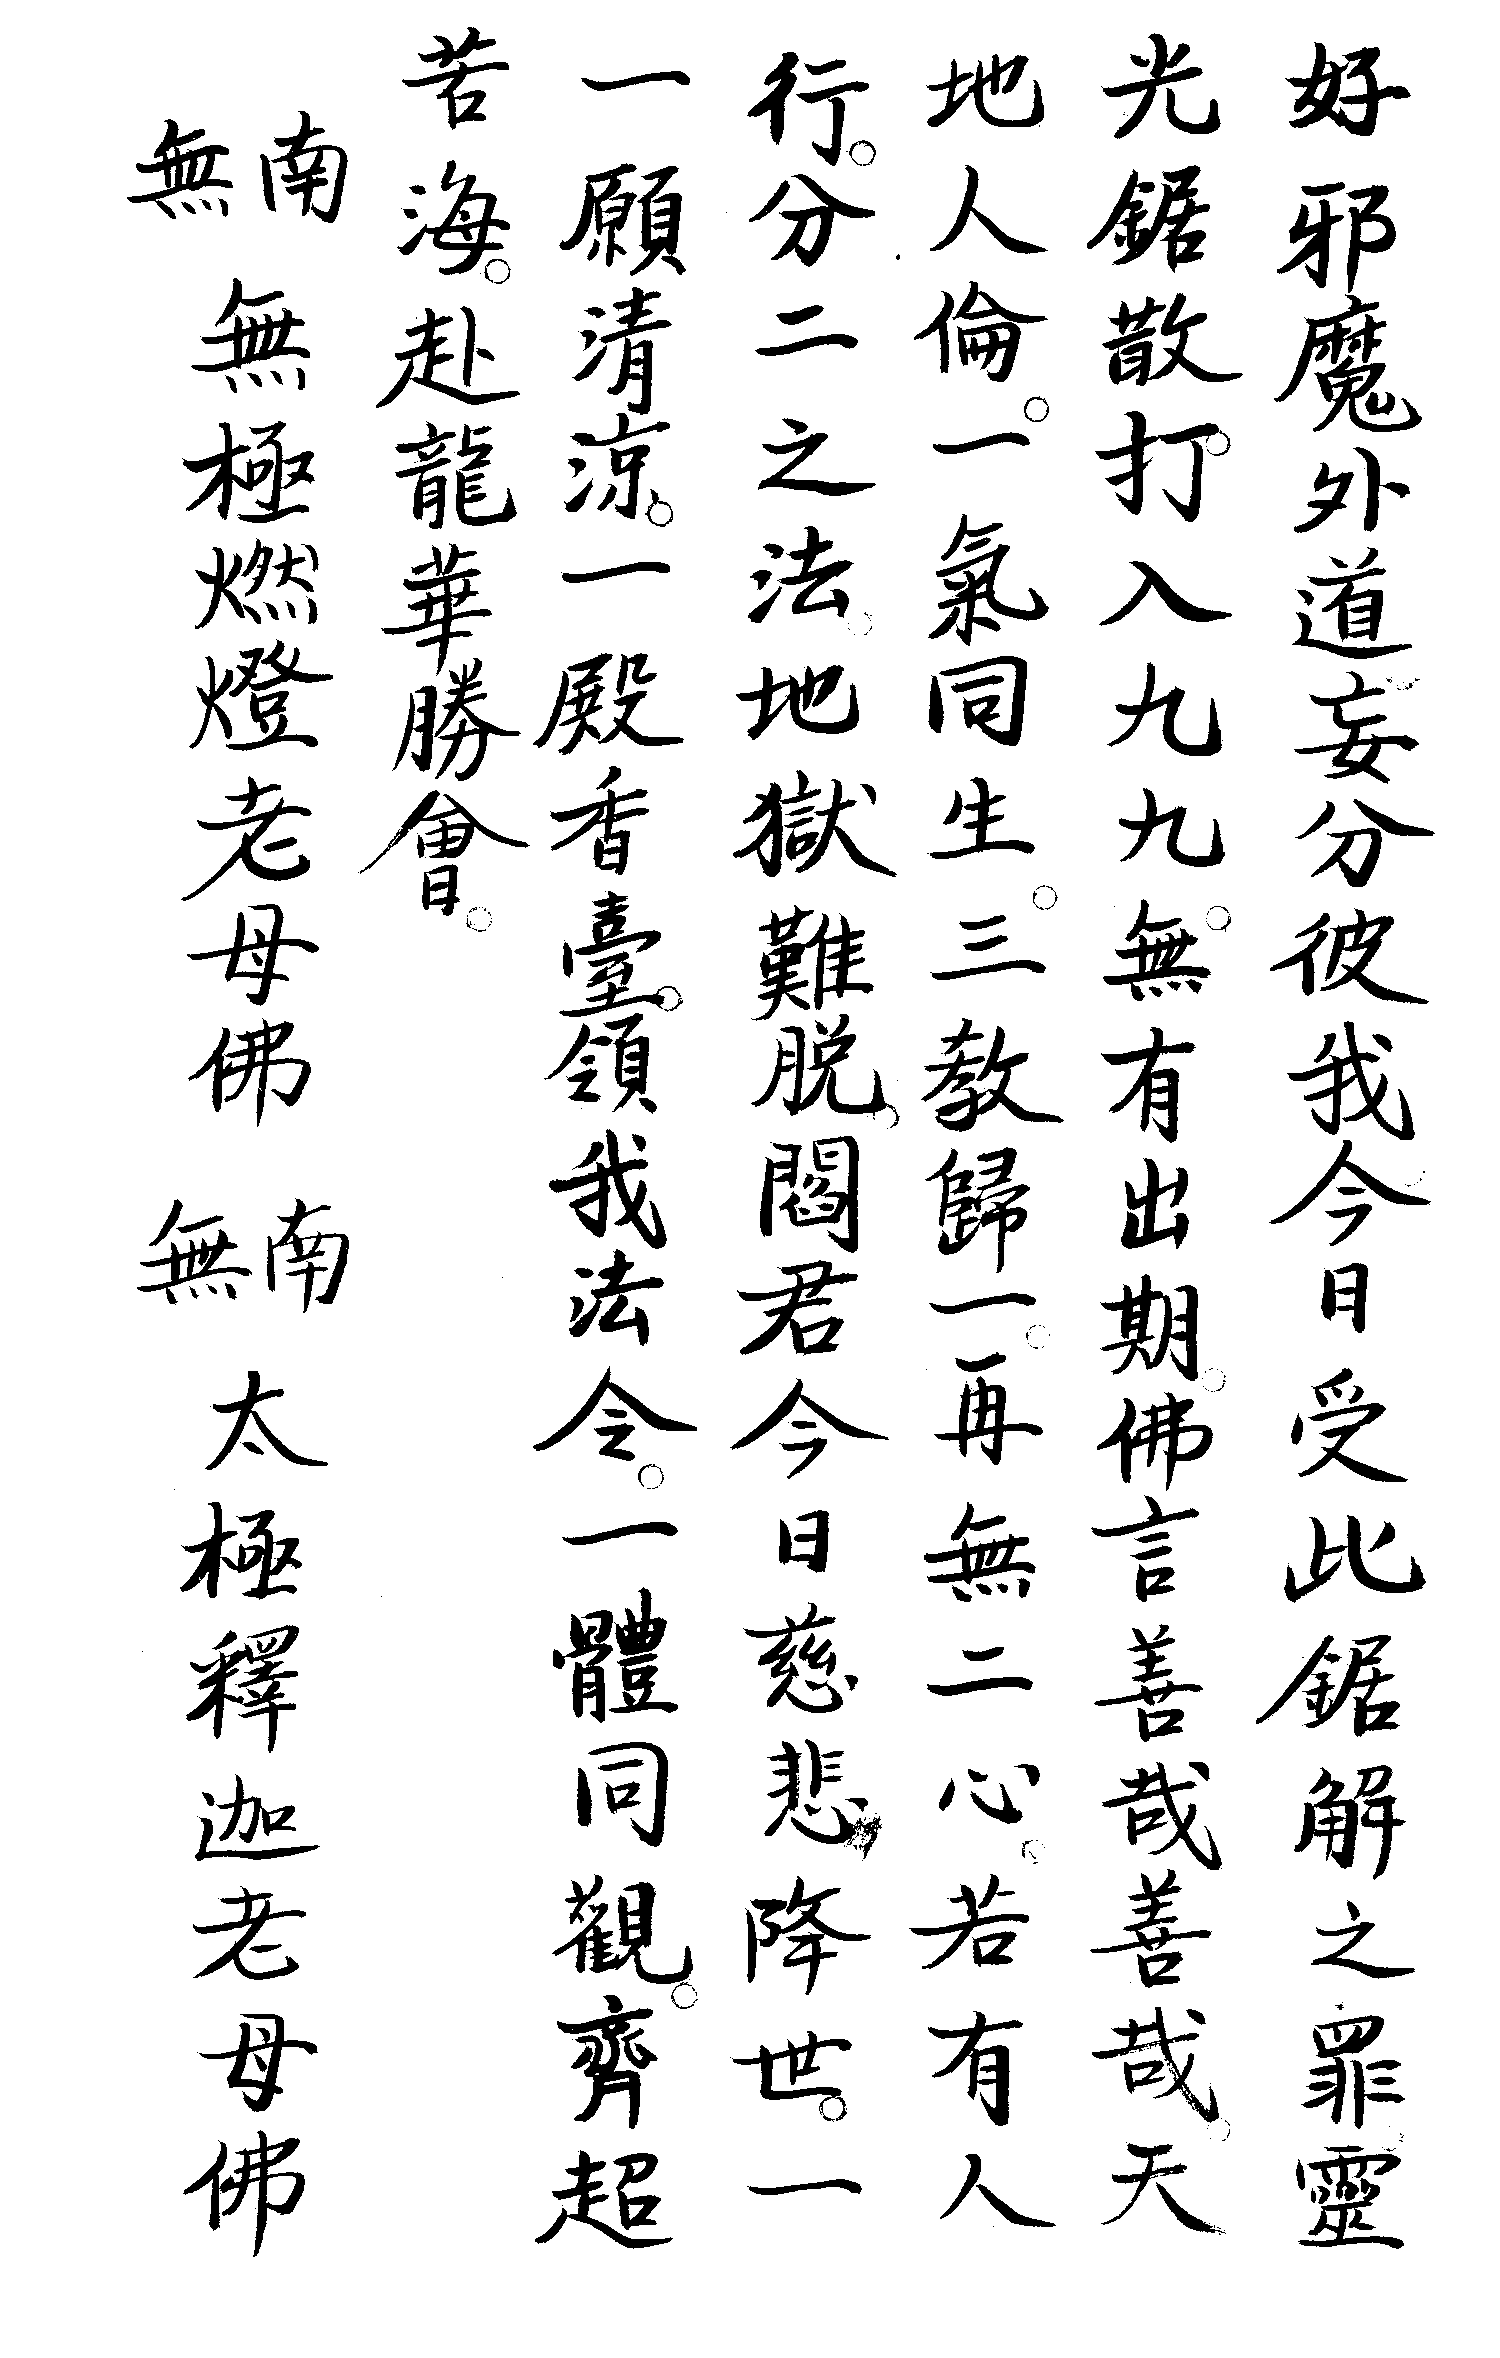 好邪魔外道妄分彼我今日受此鋸解之罪靈
光鋸散打。入九九。無有出期。佛言善哉善哉。天
地人倫。一氣同生。三教歸一。再無二心。若有人
行。分二之法。地獄難脱。閻君今日慈悲降世。一
一願清涼。一殿香臺。領我法令。一體同觀。齊超
苦海。赴龍華勝會。
南無 無極燃燈老母佛 南無 太極釋迦老母佛